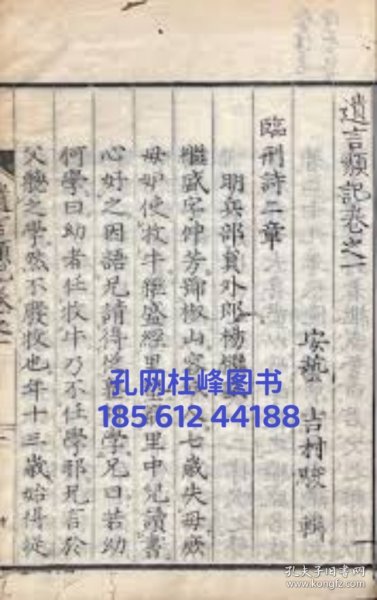 遺言類記卷之一
安藝 吉村 輯
臨刑詩二章
明兵部員外郎楊繼
繼盛字仲芳號椒山容七歲失母庶
母妒使牧牛繼盛經里里中兒讀書
心好之因語兄請得從學兄曰若幼
何學曰幼者任牧牛乃不任學邪兄言於
父聽之學然不廢牧也年十三歲始得從
遺言類記卷之一
孔网杜峰图书
185 612 44188
孔夫子旧书网